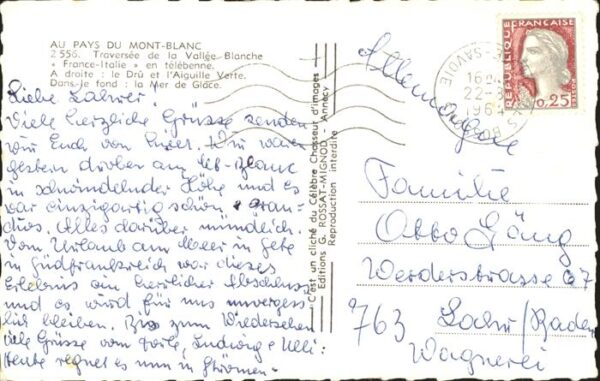 AU PAYS DU MONT-BLANC
2 556. Traversée de la Vallée Blanche
« France-Italie » en télébenne.
A droite : le Drû et l'Aiguille Verte.
Dans le fond : la Mer de Glace.
Liebe
Viele herzliche Grüsse senden
wir Euch von hier. Wir waren
gestern droben am Mt-Blanc
in schwindelnder Höhe und es
war einzigartig schön + gran-
dios. Alles darüber mündlich.
Vom Urlaub am Meer in
in Südfrankreich war dieses
Erlebnis ein herrlicher Abschluss
und es wird für uns unvergess-
lich bleiben. Bis zum Wiedersehen
viele Grüsse vom Ludwig + Ulli.
Heute regnet es nun in Strömen.
C'est un cliché du Célèbre Chasseur d'images
Editions G. ROSSAT-MIGNOD - Annecy
Reproduction interdite
Allemagne
REPUBLIQUE FRANÇAISE
0,25
16
22-8
SAVOIE
Familie
Otto Göng
Werderstrasse 67
763 Lahr/Baden
Wagnerei